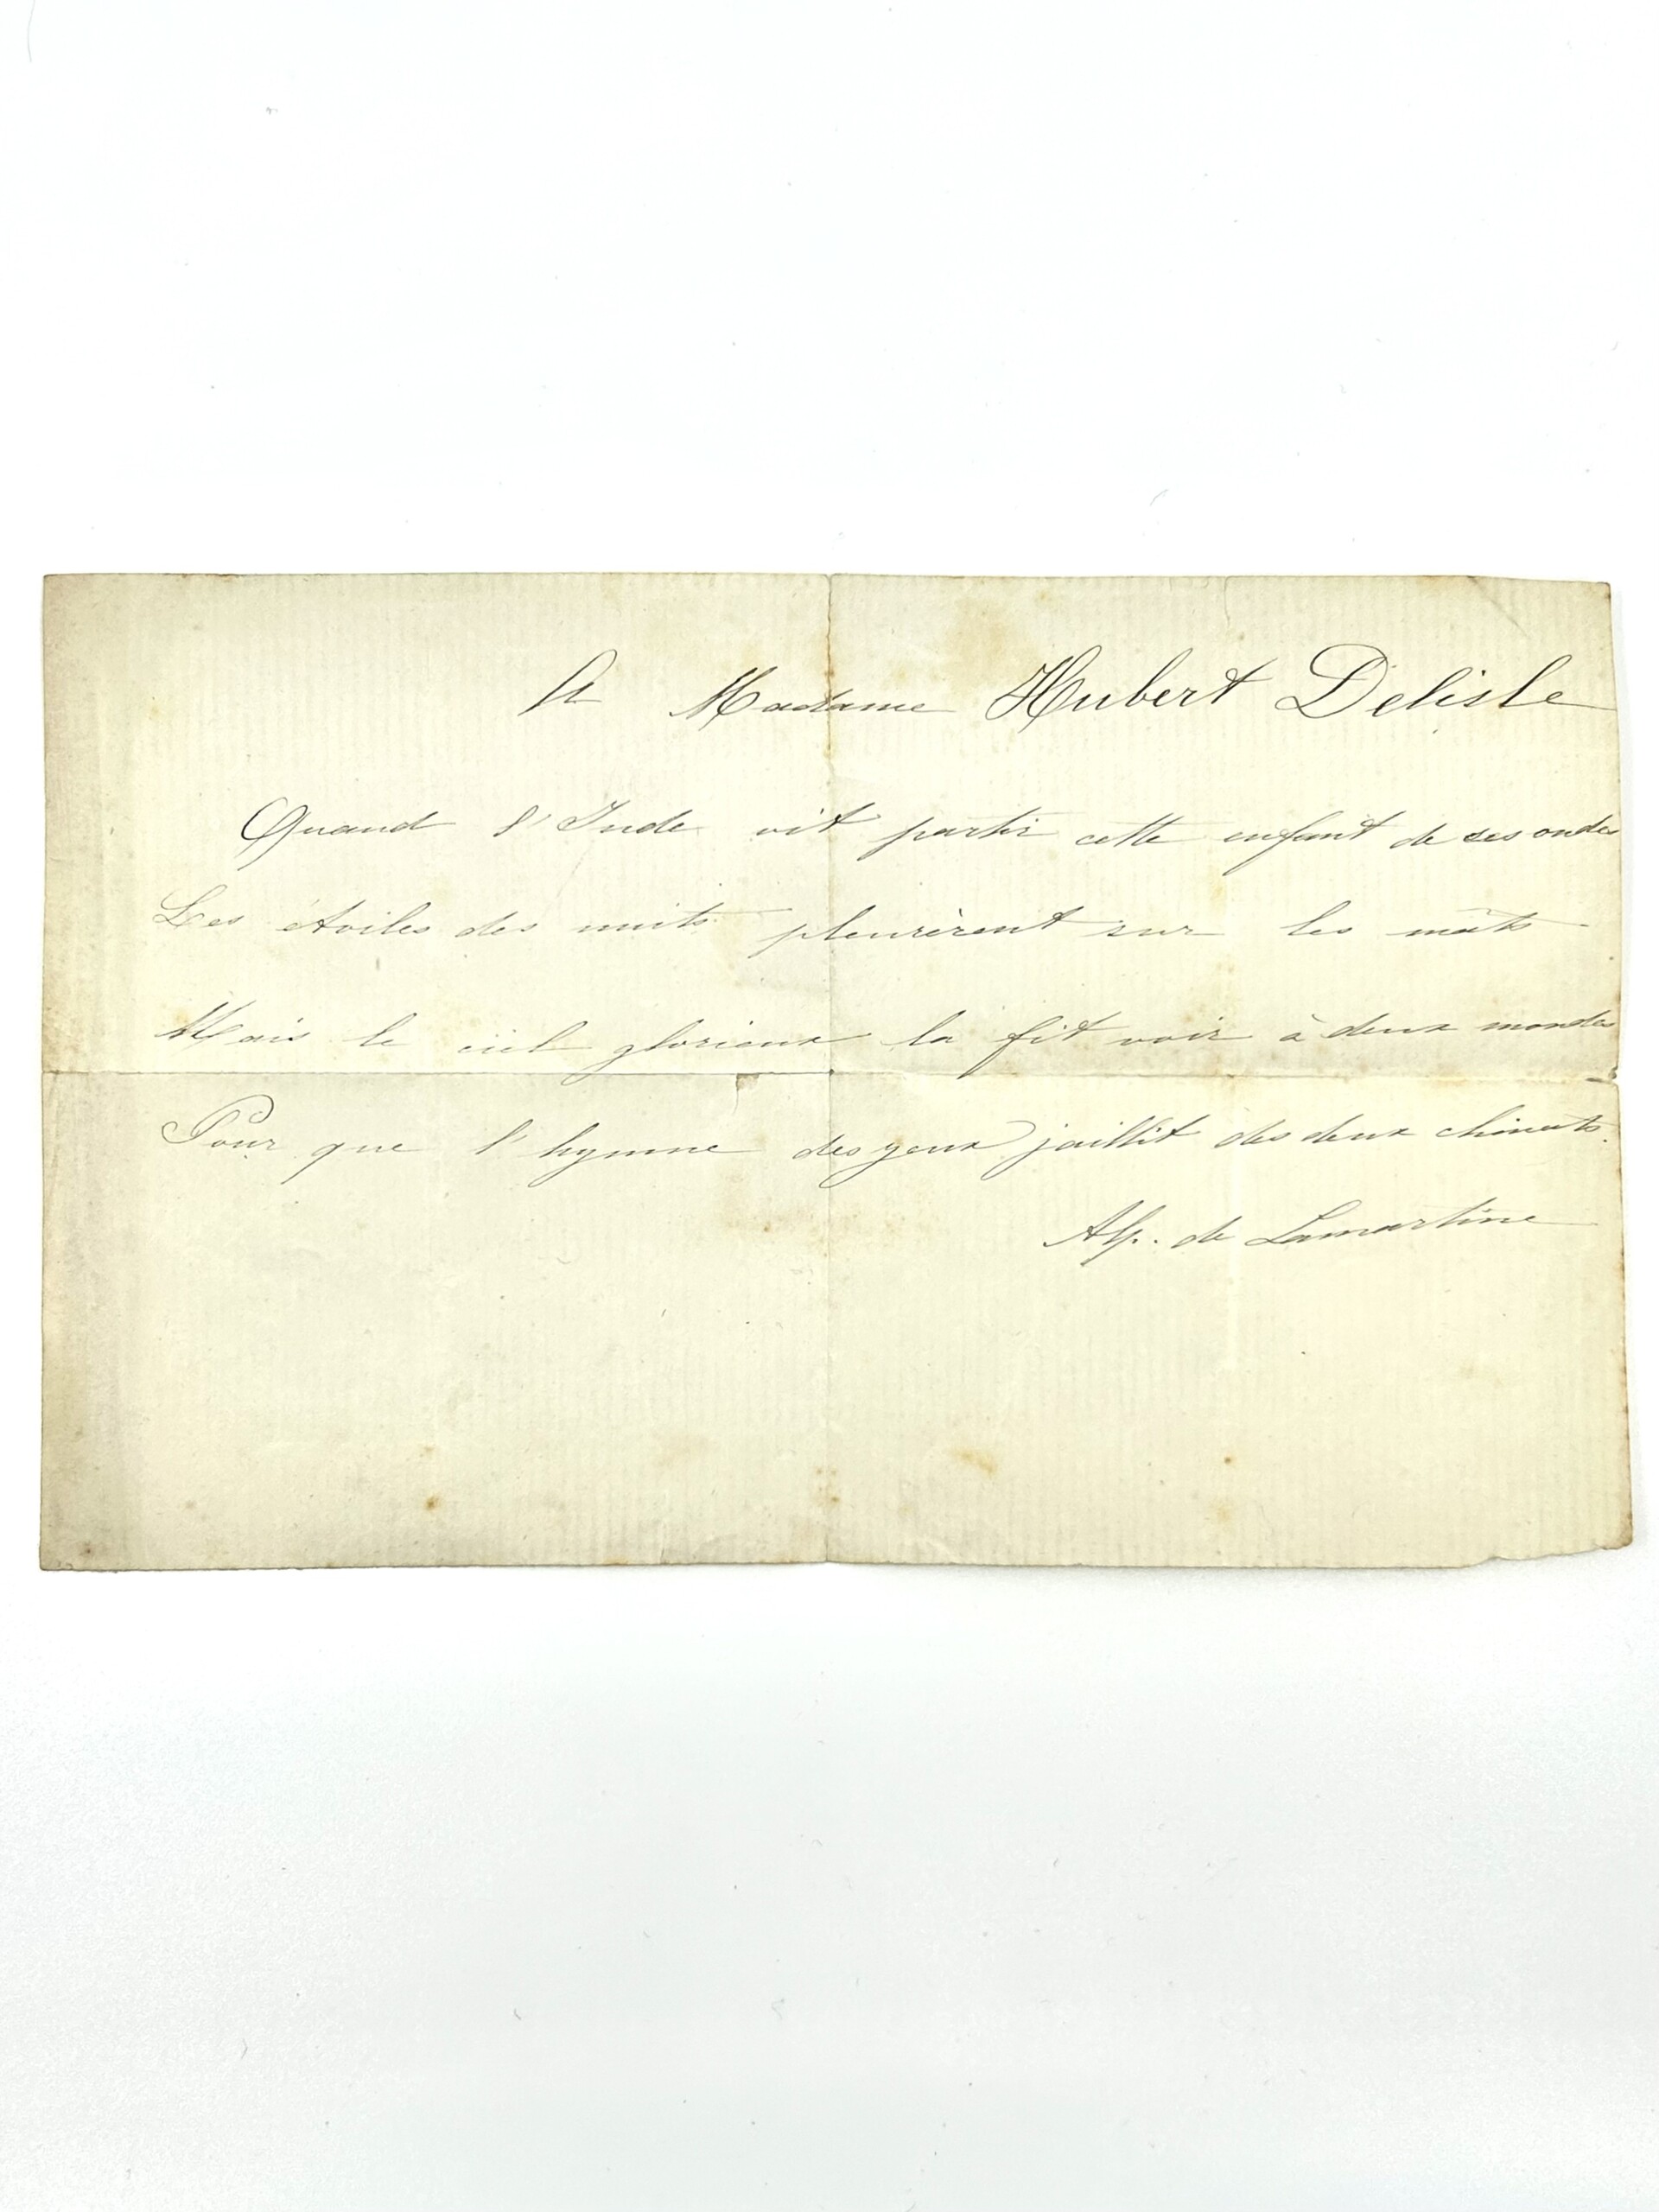 A Madame Hubert Delisle
Quand l'Inde vit partir cette enfant de ses ondes
Les étoiles des nuits pleurèrent sur les mâts
Mais le ciel glorieux la fit voir à deux mondes
Pour que l'hymne des yeux jaillit des deux climats.
Alp. de Lamartine